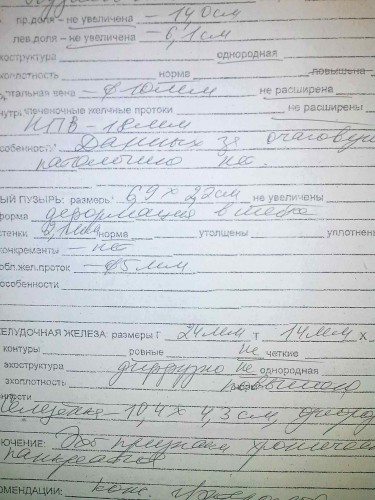 пр.доля – не увеличена – 140см
лев.доля – не увеличена – 6,1см
хоструктура однородная
хоплотность норма повышена
ортальная вена – ф 10мм не расширена
нутрипеченочные желчные протоки не расширены
НПВ – 18мм
собенности: Данных за очаговую
патологию нет.
ЫЙ ПУЗЫРЬ: размеры 6,9 х 2,2 см не увеличены
форма деформация в шейке
стенки 2,1мм норма утолщены уплотнены
конкременты – нет
общ.жел.проток – ф5 мм
особенности
ЕЛУДОЧНАЯ ЖЕЛЕЗА: размеры Г 24мм Т 14мм Х
контуры ровные не четкие
экоструктура диффузно не однородная
эхоплотность повышена
ности
Селезенка – 10,4 х 4,3 см, однород
ЮЧЕНИЕ: Эхо признаки хроничес
панкреатита
ОМЕНДАЦИИ: конс.